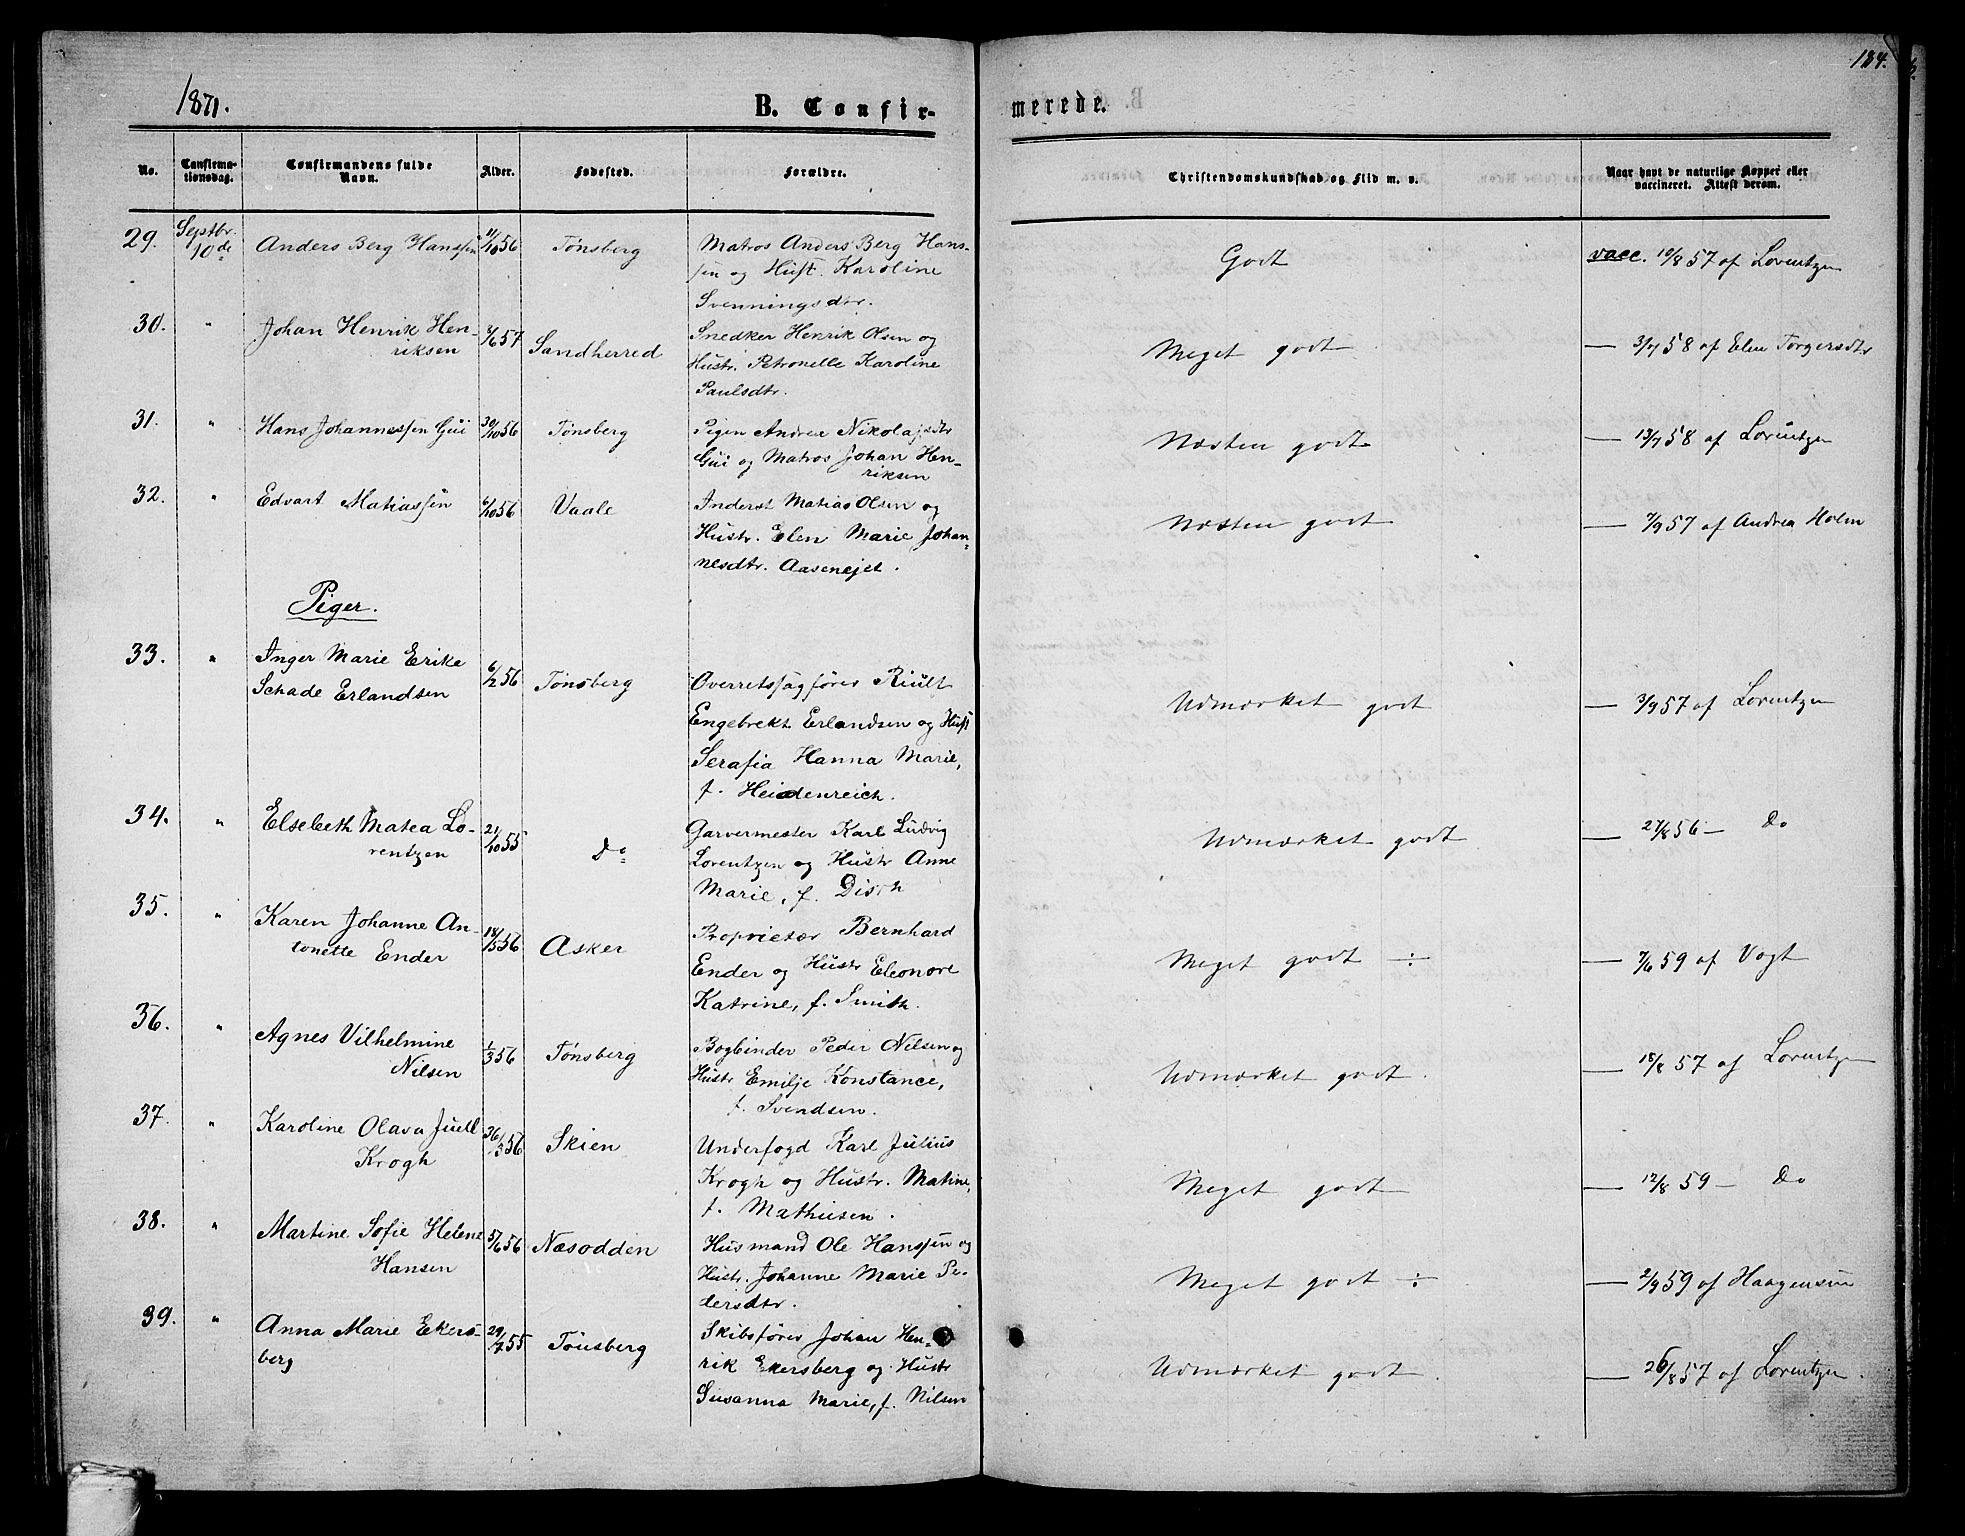 184.
1871.
B. Confir-
merede.
No.
Confirma-
tionsdag.
Confirmandens fulde
Navn.
Alder.
Fødested.
Forældre.
Christendomskundskab og Flid m. v.
Naar havt de naturlige Kopper eller
vaccineret. Attest derom.
29. Septbr. 10de Anders Berg Hanssen 11/10 56 Tønsberg Matros Anders Berg Hans-
sen og Hust. Karoline
Svenningsdtr.
Godt vacc. 10/8 57 af Lorentzen
30. " Johan Henrik Hen-
riksen 57 Sandherred Snedker Henrik Olsen og
Hustr. Petronelle Karoline
Paulsdtr.
Meget godt — 3/7 58 af Elen Torgersdtr
31. " Hans Johannessen Gui 30/10 56 Tønsberg Pigen Andrea Nikolajsdtr
Gui og Matros Johan Hen-
riksen
Næsten godt — 13/7 58 af Lorentzen
32. " Edvart Matiassen 6/10 56 Vaale Inderst Matias Olsen og
Hustr. Elen Marie Johan-
nesdtr. Aasenejet.
Næsten godt — 7/9 57 af Andrea Holm
Piger.
33. " Inger Marie Erike
Schade Erlandsen 6/2 56 Tønsberg Overretssagfører Riult
Engebrekt Erlandsen og Hust
Serafia Hanna Marie,
f. Heidenreich.
Udmærket godt — 3/9 57 af Lorentzen
34. " Elsebeth Matea Lo-
rentzen 21/10 55 Do Garvermester Karl Ludvig
Lorentzen og Hustr Anne
Marie, f. Disch
Udmærket godt — 27/8 56 — Do
35. " Karen Johanne An-
tonette Ender 18/5 56 Asker Proprietær Bernhard
Ender og Hustr Eleonore
Katrine, f. Smith.
Meget godt ÷ — 7/6 59 af Vogt
36. " Agnes Vilhelmine
Nilsen 1/3 56 Tønsberg Bogbinder Peder Nilsen og
Hustr Emilje Konstance,
f. Svendsen.
Udmærket godt. — 18/8 57 af Lorentzen
37. " Karoline Olava Juell
Krogh 56 Skien Underfogd Karl Julius
Krogh og Hustr. Matine,
f. Mathiesen.
Meget godt — 12/8 59 — Do
38. " Martine Sofie Helene
Hansen 5/6 56 Næsodden Husmand Ole Hanssen og
Hustr. Johanne Marie Pe-
dersdtr.
Meget godt ÷ — 2/9 59 af Haagensen
39. " Anna Marie Ekers-
berg 29/7 55 Tønsberg Skibsfører Johan Hen-
rik Ekersberg og Hustr
Susanna Marie, f. Nilsen
Udmærket godt. — 26/8 57 af Lorentzen.